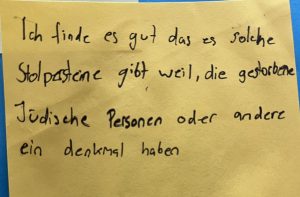 Ich finde es gut das es solche
Stolpersteine gibt weil, die gestorbene
Jüdische Personen oder andere
ein denkmal haben